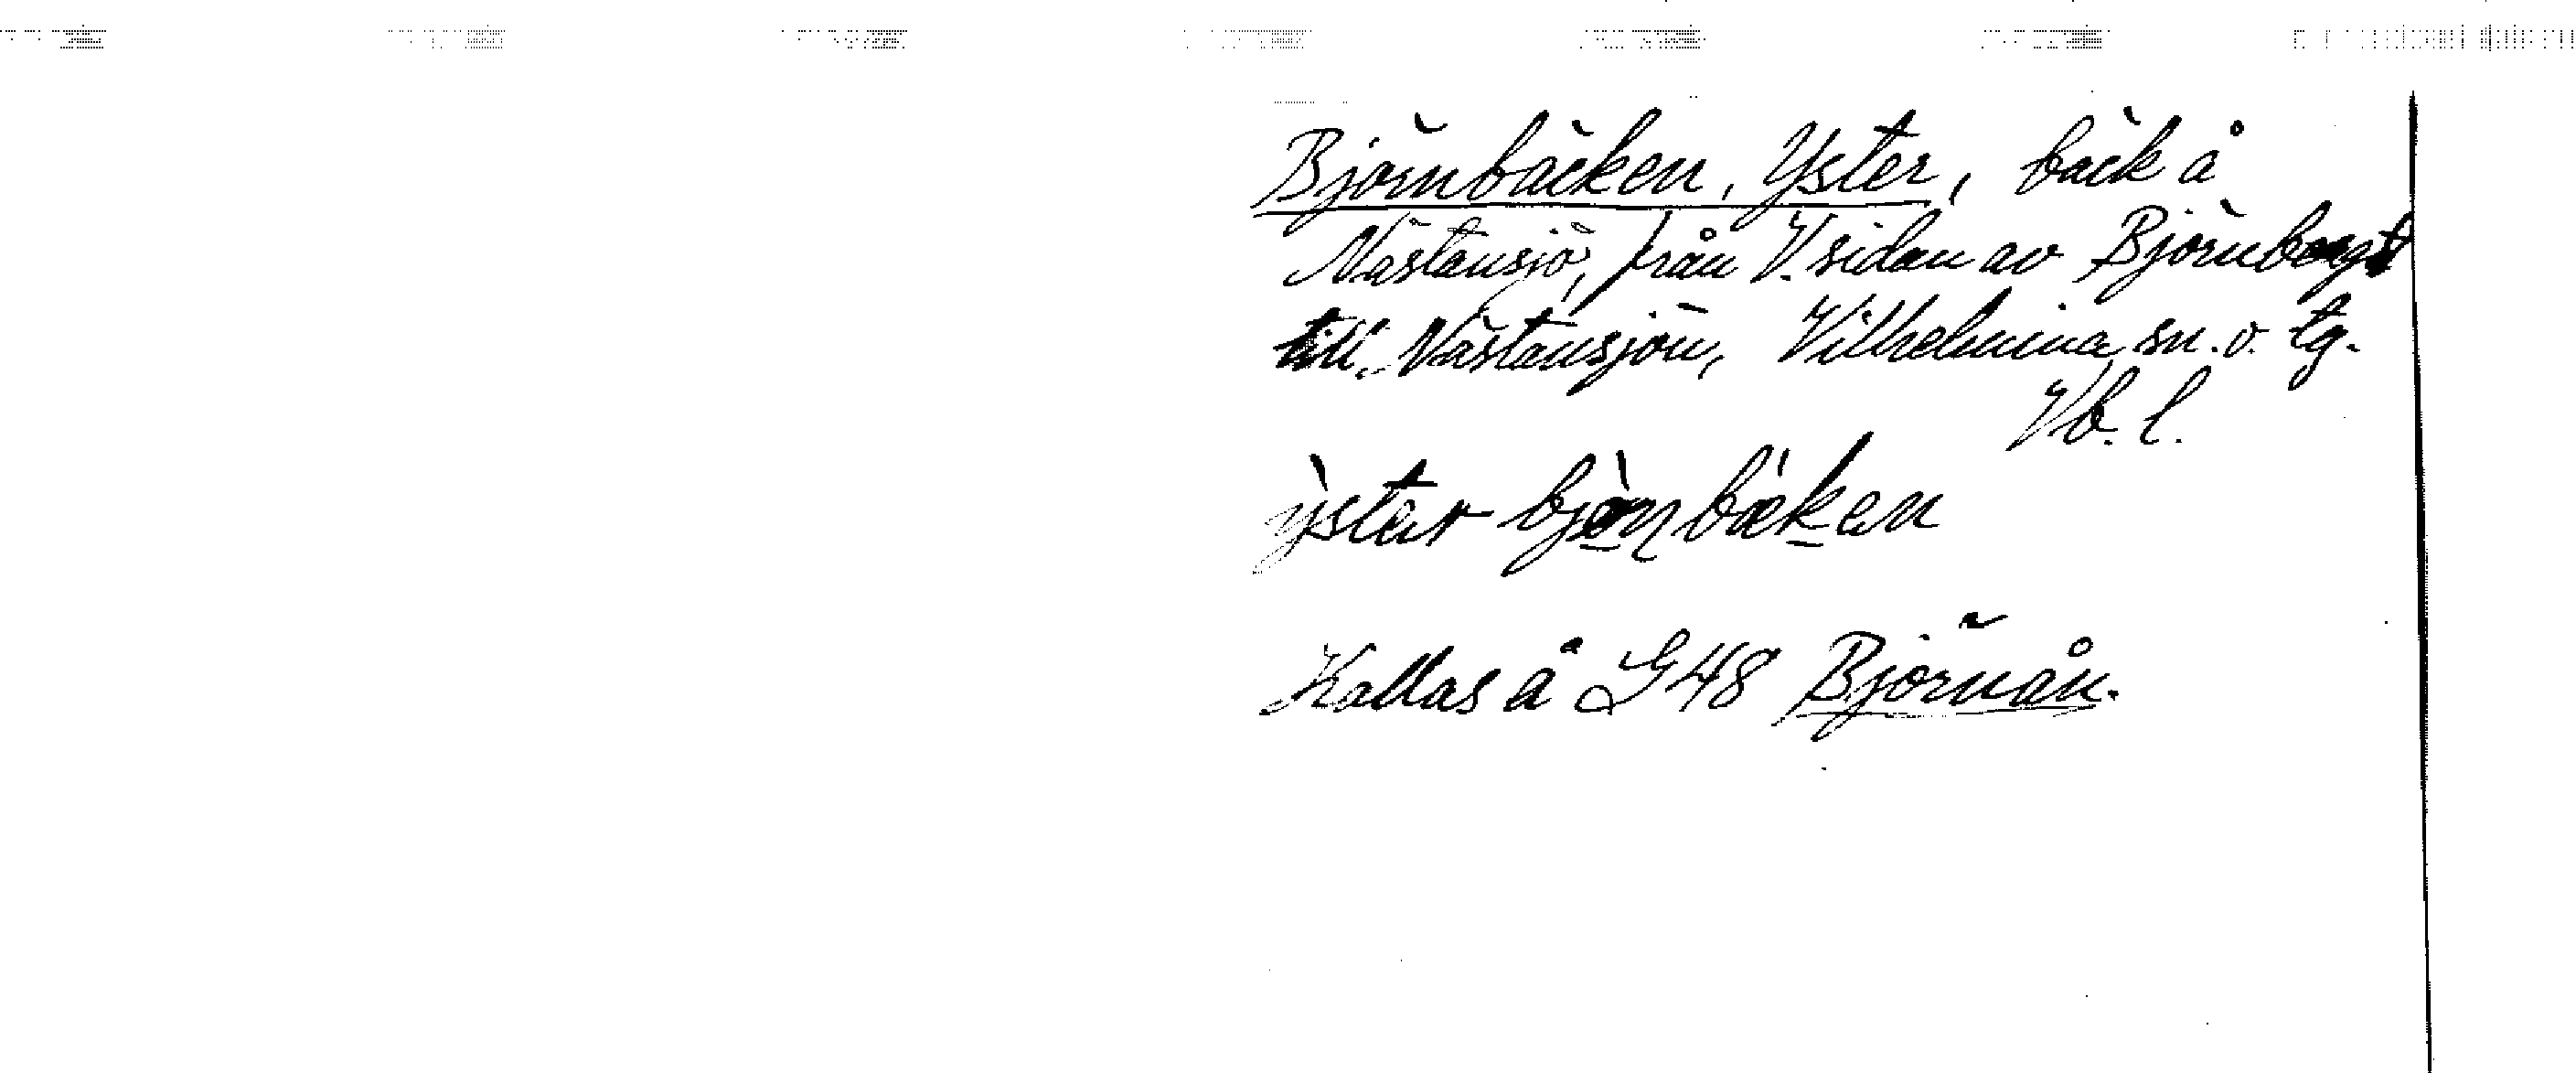 Björnbäcken, Yster, bäck å
Nästansjö, från V. sidan av Björnberget
till Nästansjön, Vilhelmina sn. o. tg.
Vb. l.
ỳstər bjö̀ɳbækən
Kallas å G48 Björnån.